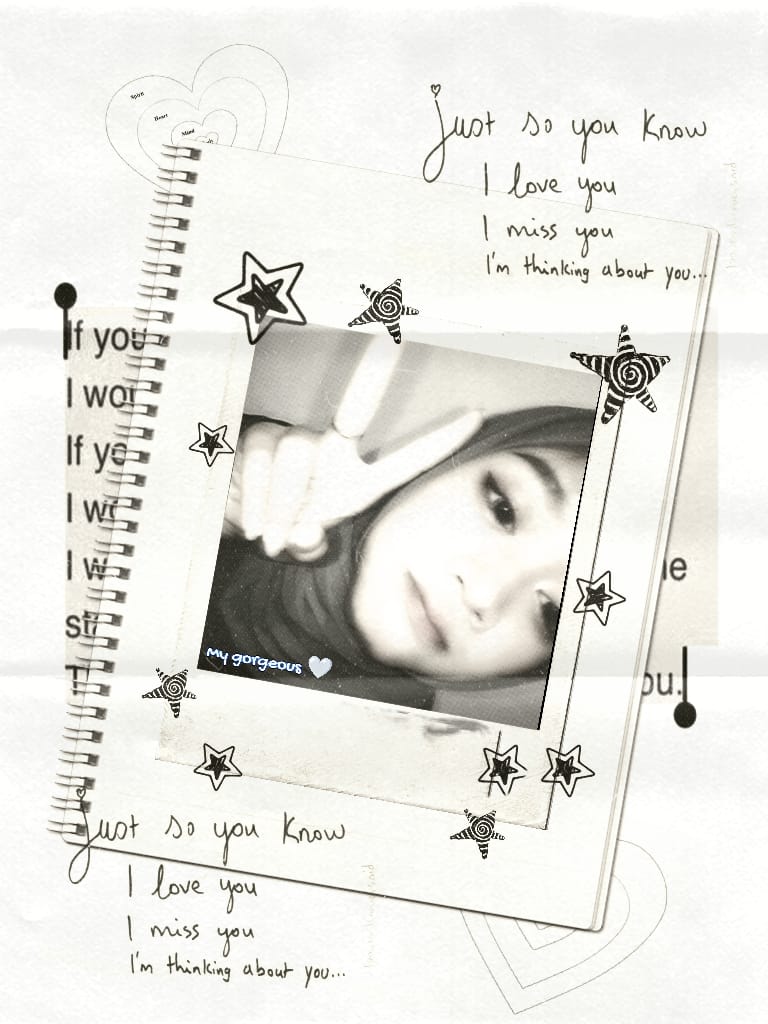 Spirit
Heart
Mind
Just so you know
I love you
I miss you
I'm thinking about you...
If you
I wo
If yo
I w
I w
ne
st
T
ou.
My gorgeous 🤍
Just so you know
I love you
I miss you
I'm thinking about you...